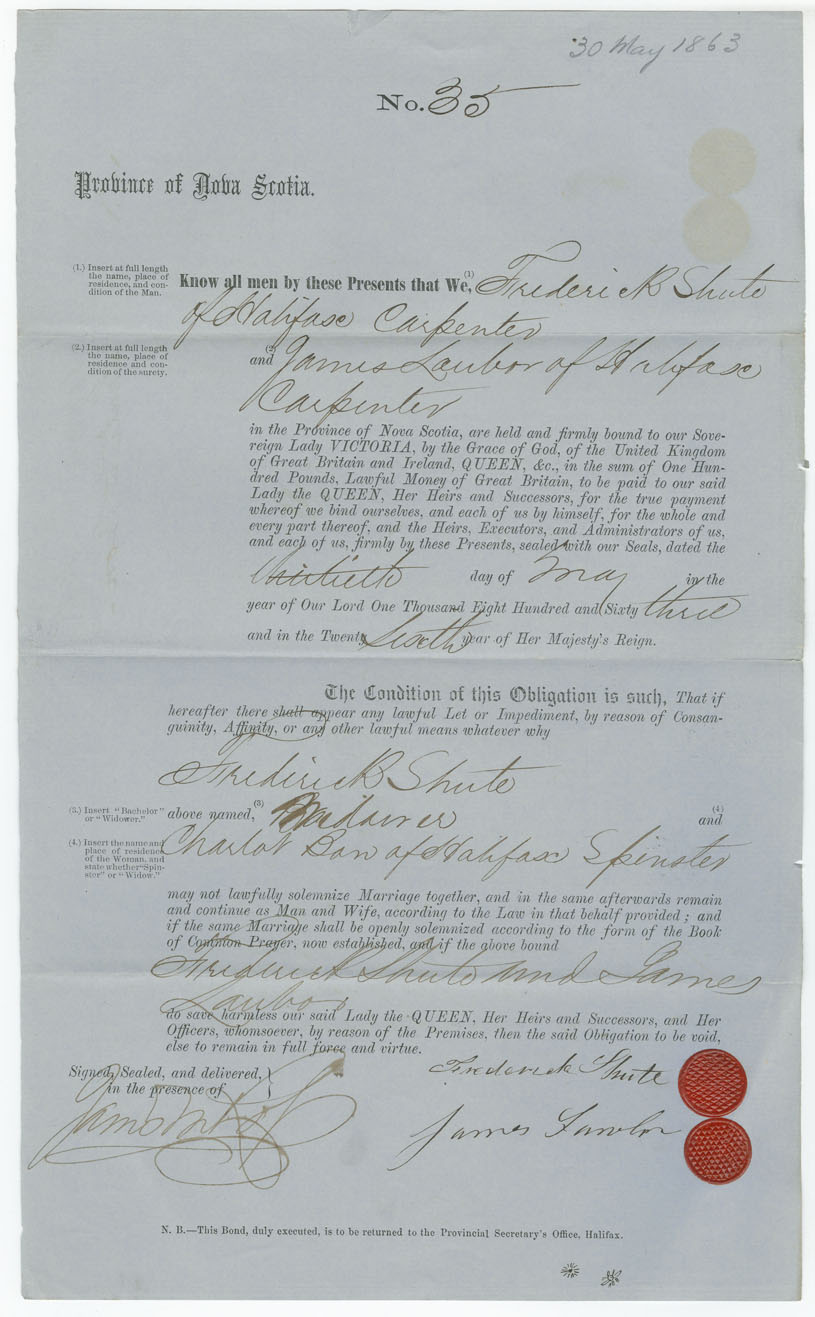 30 May 1863
No. 35
Province of Nova Scotia.
(1.) Insert at full length
the name, place of
residence, and con-
dition of the Man.
Know all men by these Presents that We, (1) Frederick Shute
of Halifax Carpenter
(2.) Insert at full length
the name, place of
residence and con-
dition of the surety.
and (2) James Laubor of Halifax
Carpenter
in the Province of Nova Scotia, are held and firmly bound to our Sove-
reign Lady VICTORIA, by the Grace of God, of the United Kingdom
of Great Britain and Ireland, QUEEN, &c., in the sum of One Hun-
dred Pounds, Lawful Money of Great Britain, to be paid to our said
Lady the QUEEN, Her Heirs and Successors, for the true payment
whereof we bind ourselves, and each of us by himself, for the whole and
every part thereof, and the Heirs, Executors, and Administrators of us,
and each of us, firmly by these Presents, sealed with our Seals, dated the
thirtieth day of May in the
year of Our Lord One Thousand Eight Hundred and Sixty three
and in the Twenty Sixth year of Her Majesty's Reign.
The Condition of this Obligation is such, That if
hereafter there shall appear any lawful Let or Impediment, by reason of Consan-
guinity, Affinity, or any other lawful means whatever why
Frederick Shute
(3.) Insert "Bachelor"
or "Widower."
above named, (3) Widower and (4)
(4.) Insert the name and
place of residence
of the Woman, and
state whether "Spin-
ster" or "Widow."
Charlot Bon of Halifax Spinster
may not lawfully solemnize Marriage together, and in the same afterwards remain
and continue as Man and Wife, according to the Law in that behalf provided; and
if the same Marriage shall be openly solemnized according to the form of the Book
of Common Prayer, now established, and if the above bound
Frederick Shute and James
Laubor
do save harmless our said Lady the QUEEN, Her Heirs and Successors, and Her
Officers, whomsoever, by reason of the Premises, then the said Obligation to be void,
else to remain in full force and virtue.
Signed, Sealed, and delivered,
in the presence of
Frederick Shute
James Lawlor
N. B.—This Bond, duly executed, is to be returned to the Provincial Secretary's Office, Halifax.